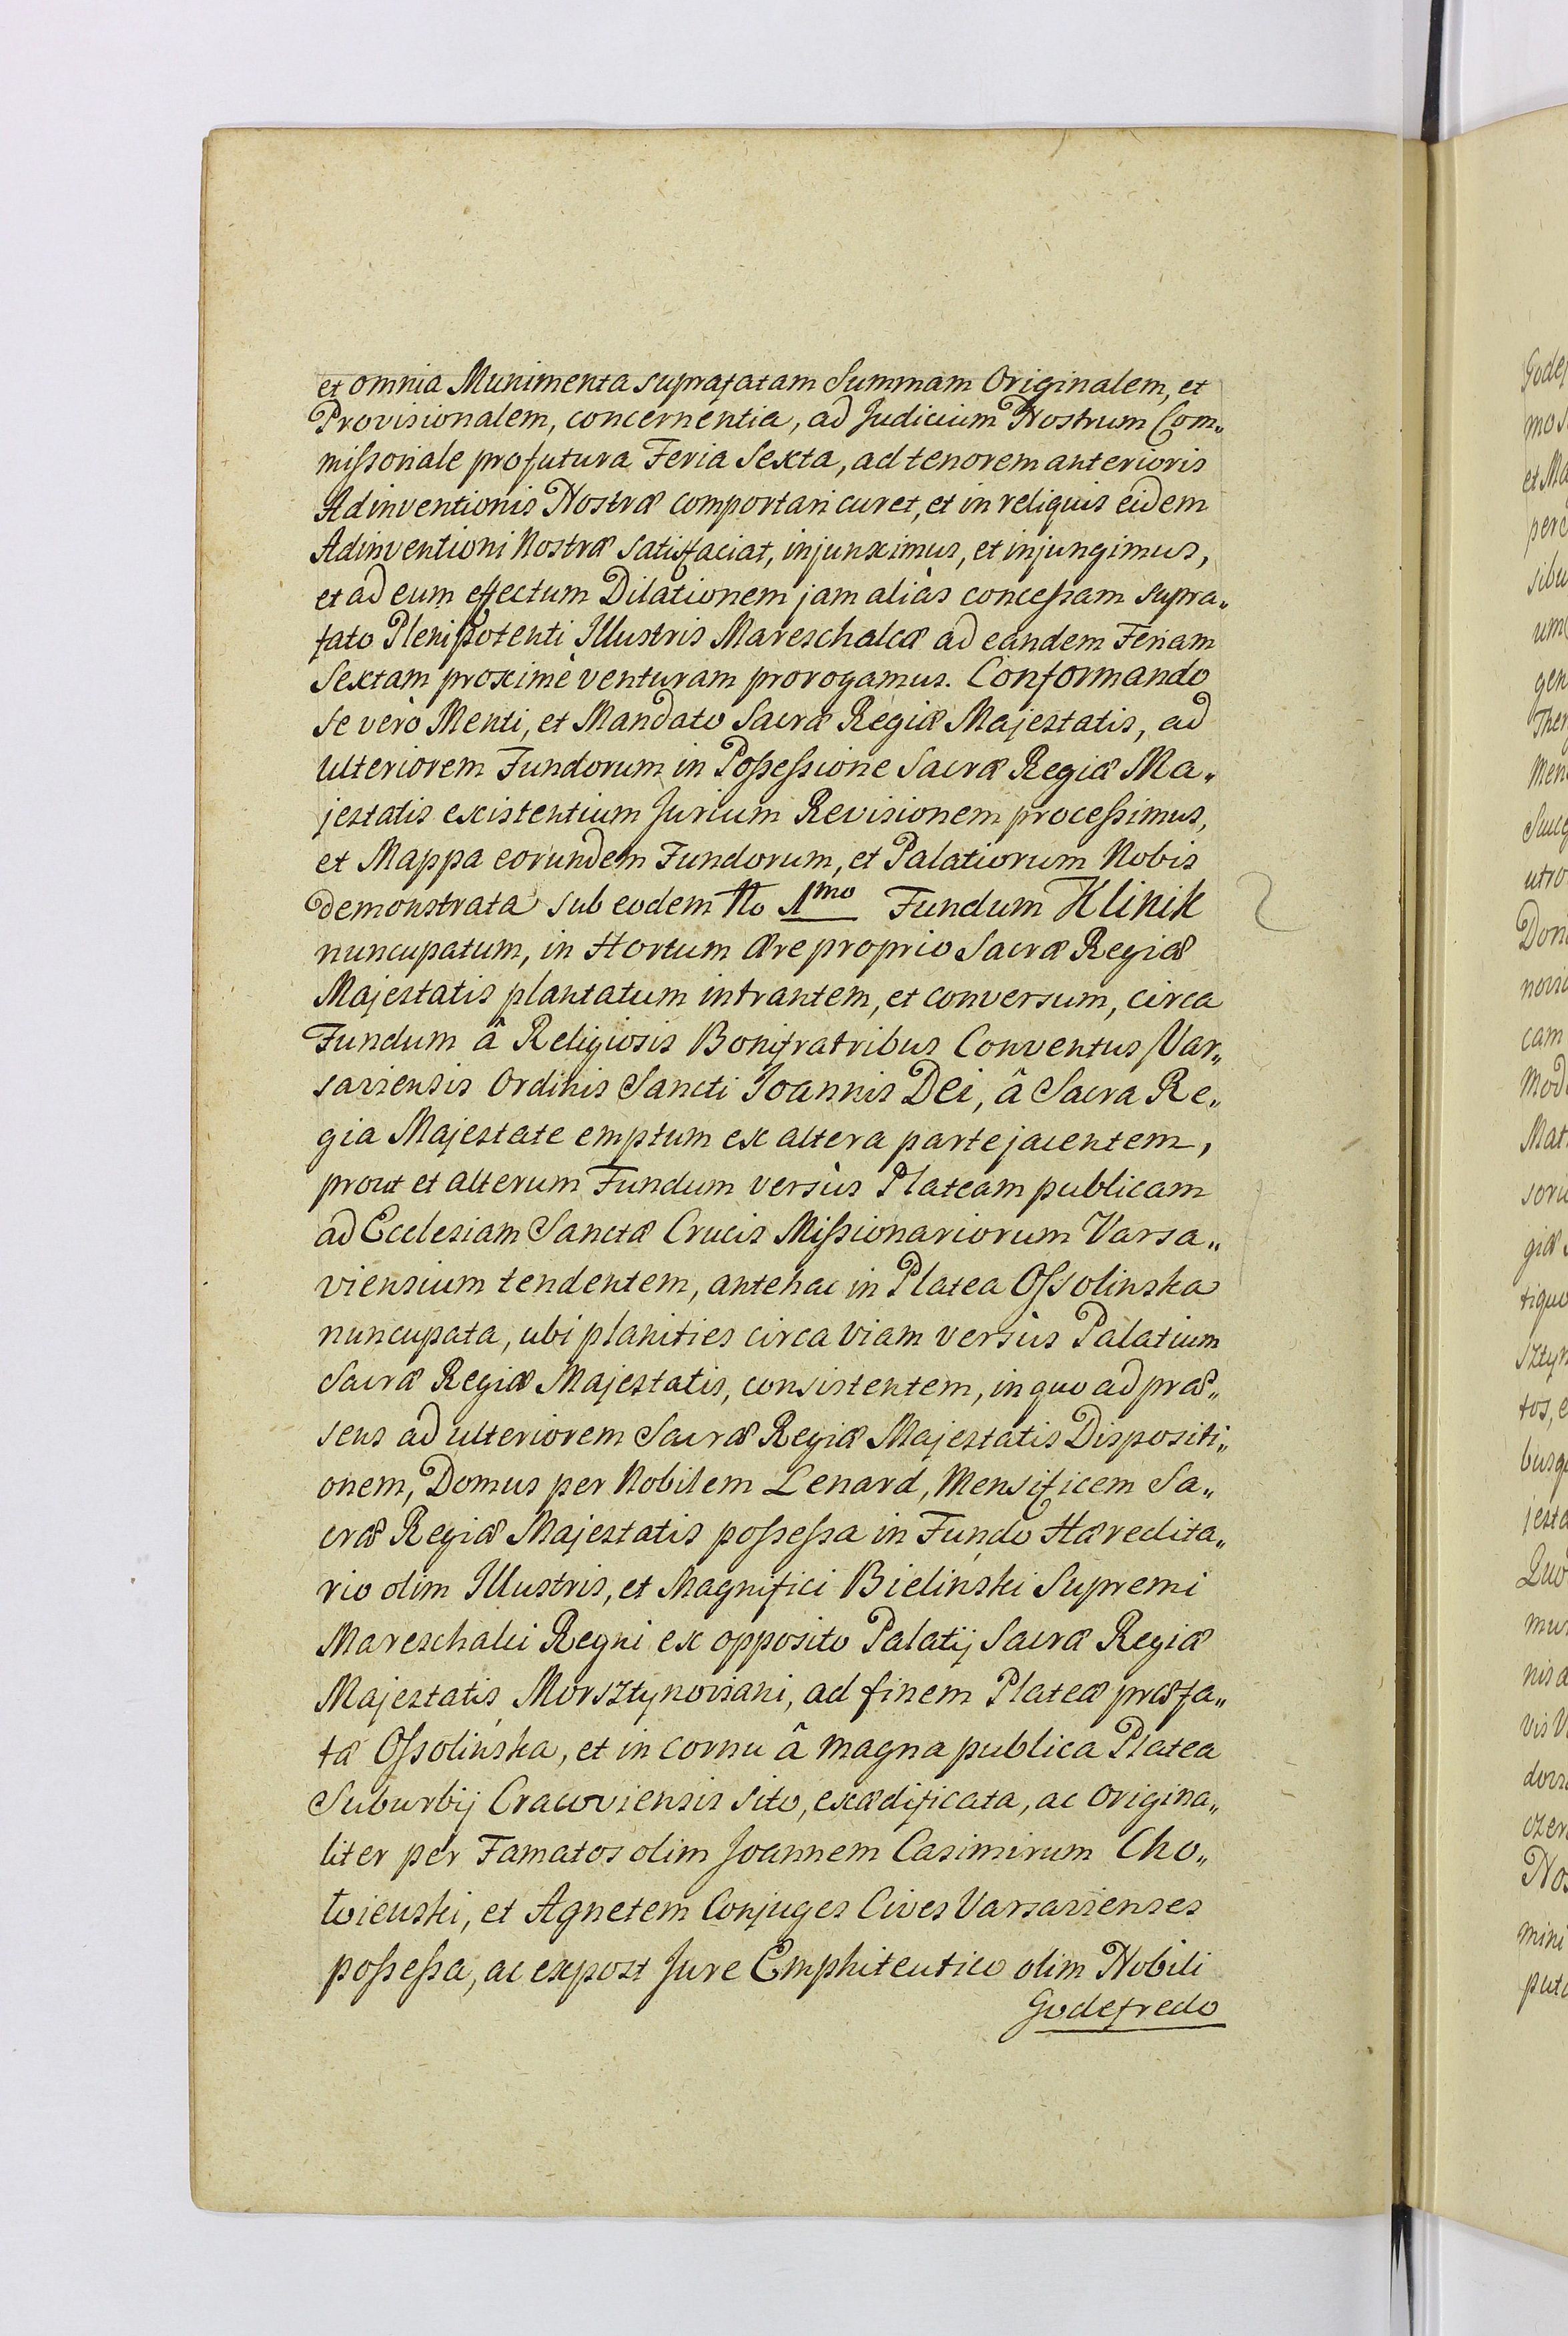 et omnia Munimenta suprafatam Summam Originalem, et
Provisionalem, concernentia, ad Judicium Nostrum Com„
mißoriale profutura Feria Sexta, ad tenorem anterioris
Adinventionis Nostræ comportari curet, et in reliquis eidem
Adinventioni Nostræ satisfaciat, injunximus, et injungimus,
et ad eum effectum Dilationem jam aliàs conceßam supra„
fato Plenipotenti Illustris Mareschalcæ ad eandem Feriam
Sextam proximè venturam prorogamus. Conformando
se verò Menti, et Mandato Sacræ Regiæ Majestatis, ad
ulteriorem Fundorum in Poßeßione Sacræ Regiæ Ma„
jestatis existentium Jurium Revisionem proceßimus,
et Mappa eorundem Fundorum, et Palatiorum Nobis
demonstrata sub eodem No 1mo Fundum Klinik
nuncupatum, in Hortum ære proprio Sacræ Regiæ
Majestatis plantatum intrantem, et conversum, circa
Fundum â Religiosis Bonifratribus Conventus Var„
saviensis Ordinis Sancti Joannis Dei, â Sacra Re„
gia Majestate emptum ex altera parte jacentem,
prout et alterum Fundum versùs Plateam publicam
ad Ecclesiam Sanctæ Crucis Mißionariorum Varsa„
viensium tendentem, antehac in Platea Oßolinska
nuncupata, ubi planities circa viam versùs Palatium
Sacræ Regiæ Majestatis, consistentem, in quo ad præ„
sens ad ulteriorem Sacræ Regiæ Majestatis Dispositi„
onem, Domus per Nobilem Lenard, Mensificem Sa„
cræ Regiæ Majestatis poßeßa in Fundo Hæredita„
rio olim Illustris, et Magnifici Bielinski Supremi
Mareschalci Regni ex opposito Palatij Sacræ Regiæ
Majestatis Morsztynoviani, ad finem Plateæ præfa„
tæ Oßolinska, et in cornu â magna publica Platea
Suburbij Cracoviensis sito, exædificata, ac origina„
liter per Famatos olim Joannem Casimirum Cho„
twienski, et Agnetem Conjuges Cives Varsavienses
poßeßa, ac expost Jure Emphiteutico olim Nobili
Godefredo